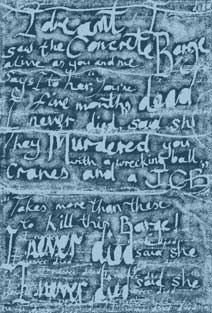 I dreamt I
saw the Concrete Barge
alive as you and me
Says I to her, "you're
five months dead
I never died said she
They Murdered you
with a wrecking ball"
Cranes and a JCB
"Takes more than these
to kill this Barge!
I never died said she
I never died said she